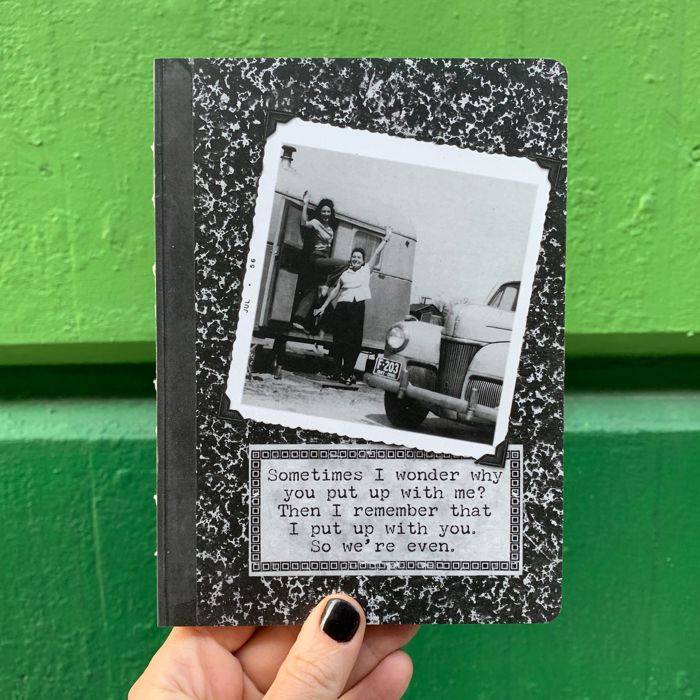 JUL • 56
F-203
Sometimes I wonder why
you put up with me?
Then I remember that
I put up with you.
So we're even.